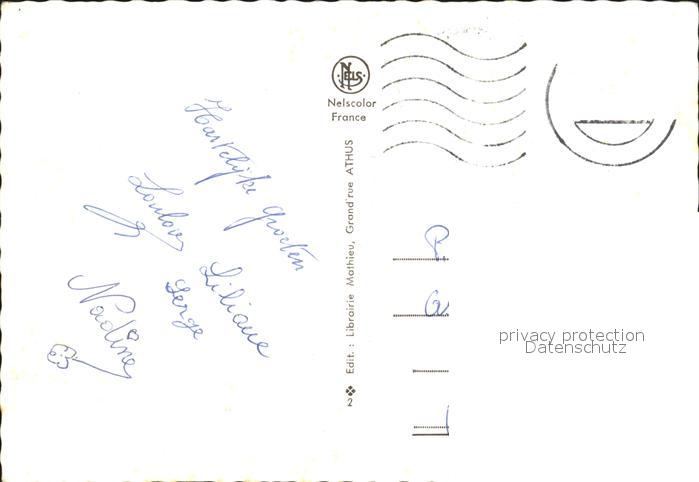 NELS
Nelscolor
France
Edit. : Librairie Mathieu, Grand'rue ATHUS
2
Hartelijke groeten
Liliane
Serge
Nadine
privacy protection
Datenschutz